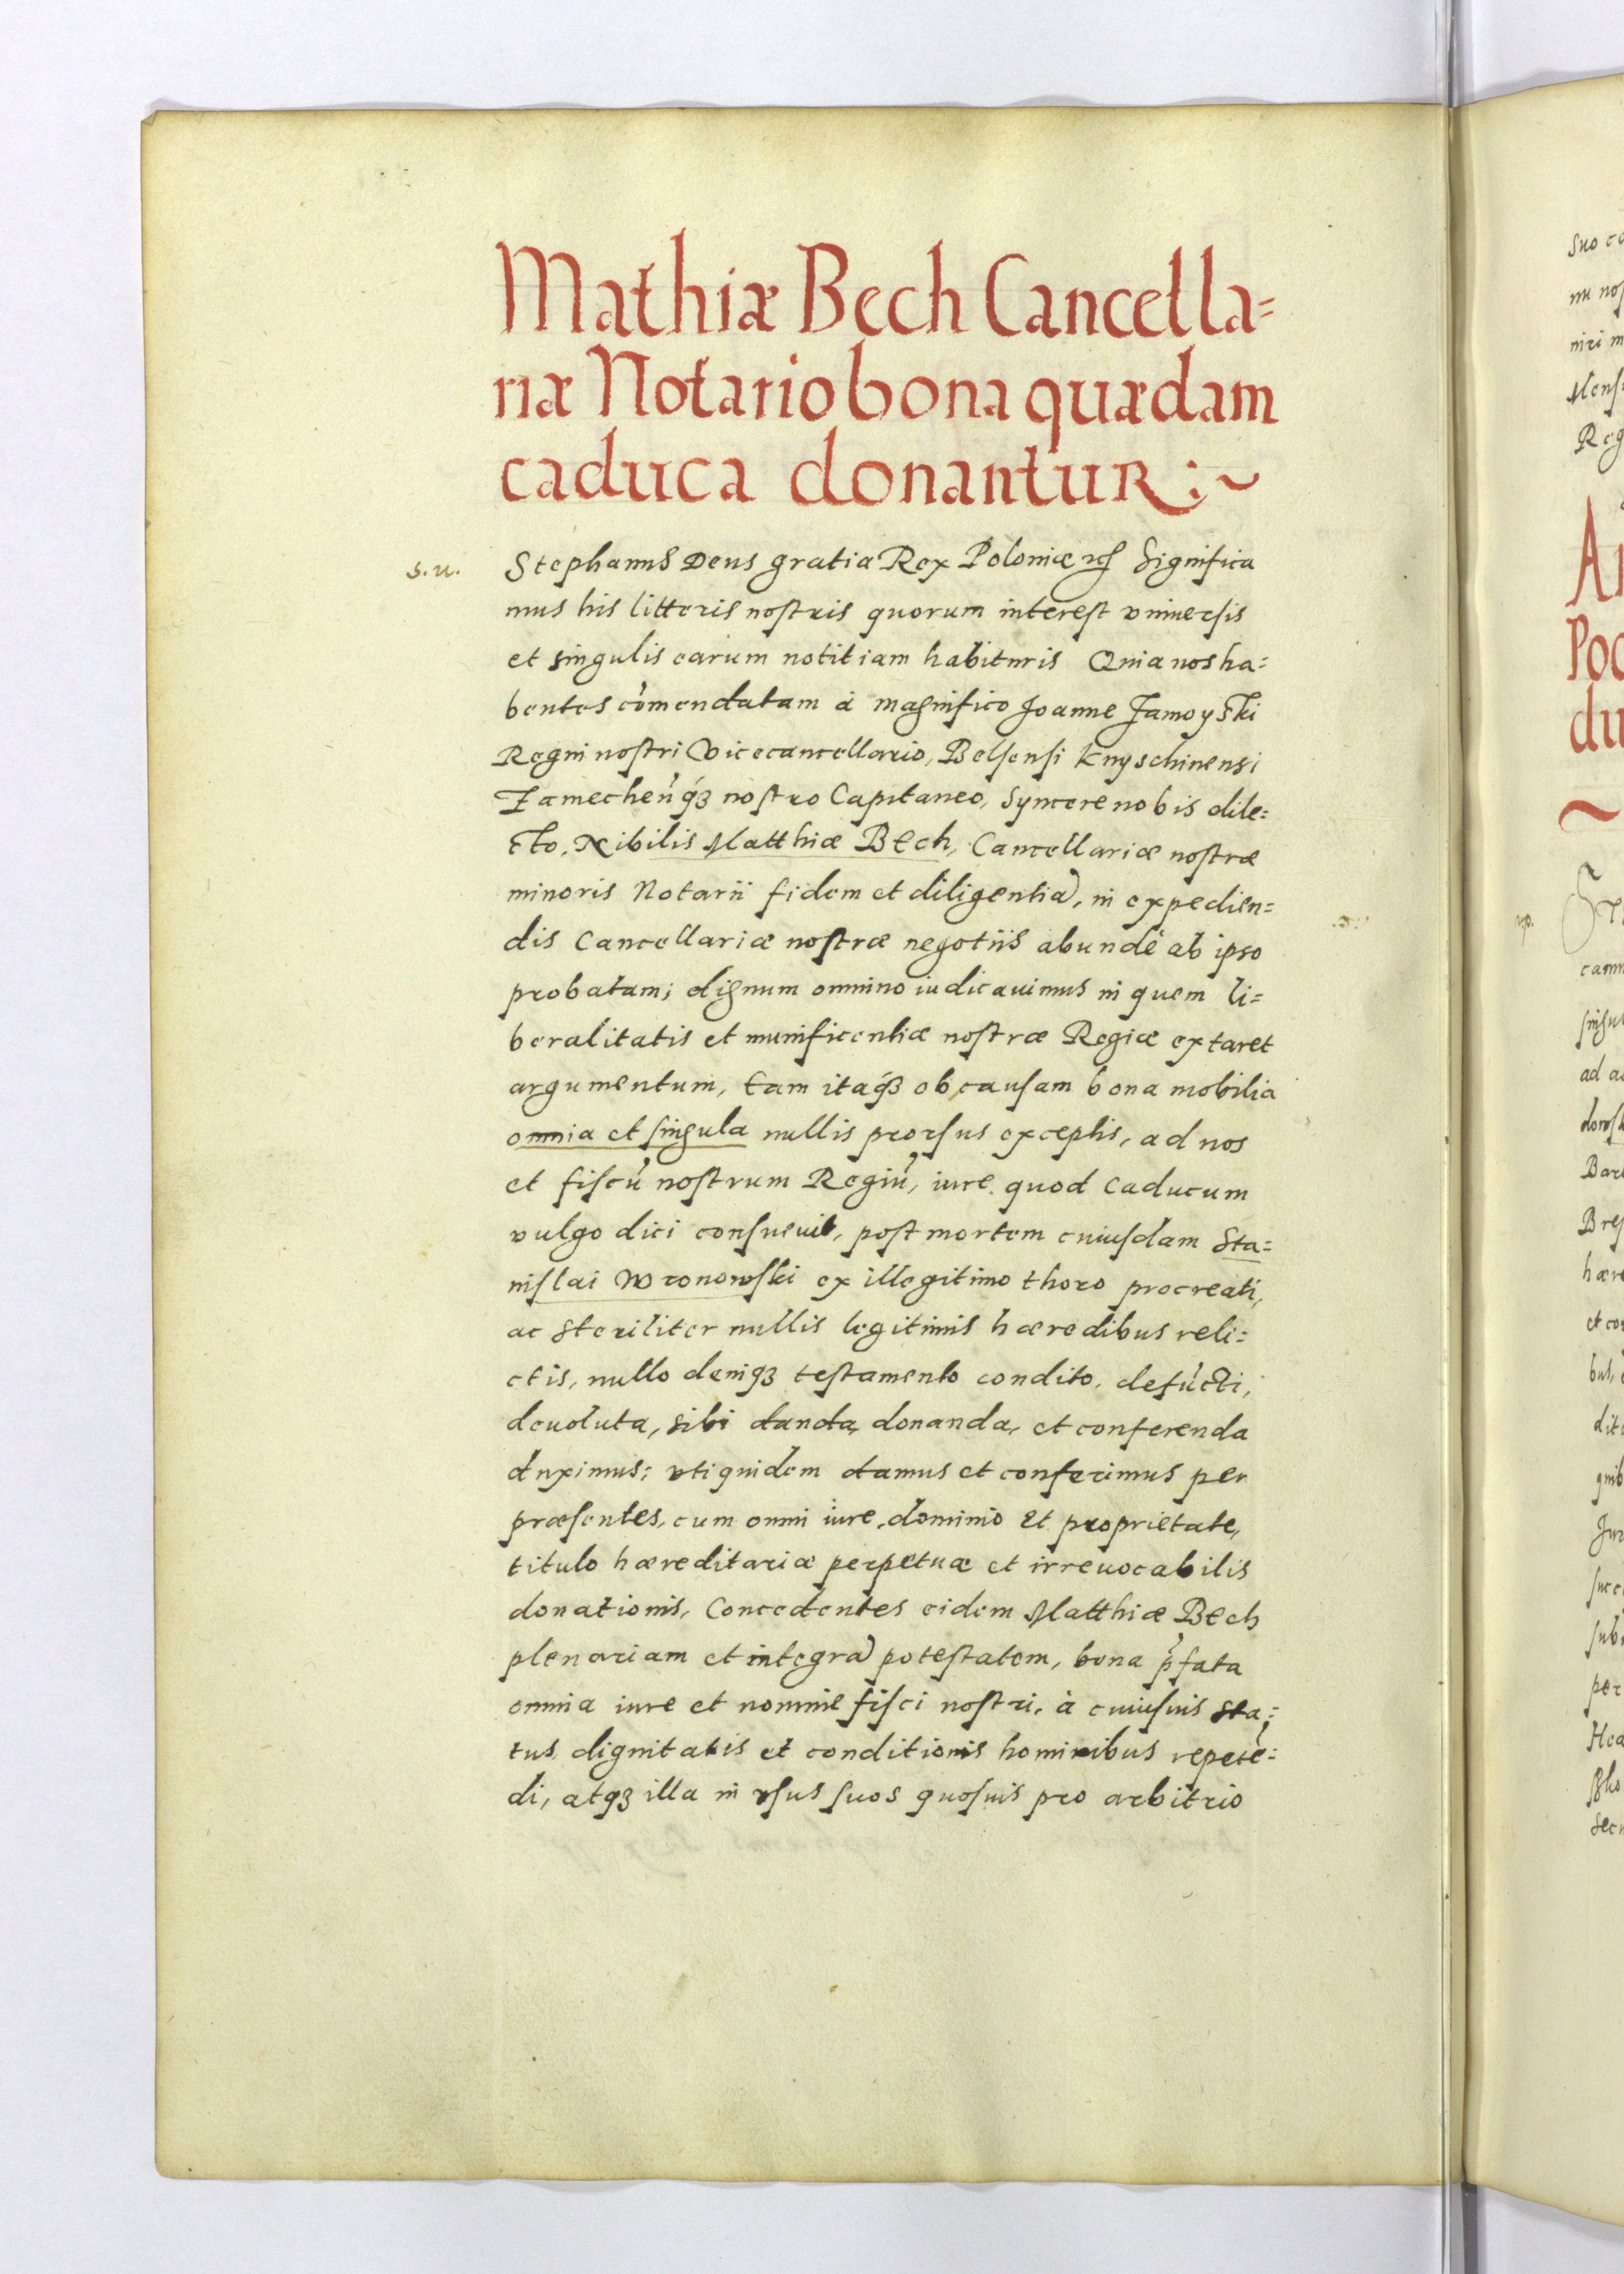 Mathiæ Bech Cancella=
riæ Notario bona quædam
caduca donantur :~
s.u.
Stephanus Deus gratia Rex Poloniæ etc Significa
mus his litteris nostris quorum interest vniuersis
et singulis earum notitiam habituris Quia nos ha=
bentes cōmendatam à magnifico Joanne Zamoyski
Regni nostri Vicecancellario, Belsensi Knyschinensi
Zamechen̄qз nostro Capitaneo, Syncere nobis dile=
cto. Nibilis Matthiæ Bech, Cancellariæ nostræ
minoris Notarii fidem et diligentiā, in expedien=
dis Cancellariæ nostræ negotiis abundè ab ipso
probatam; dignum omnino iudicauimus in quem li=
beralitatis et munificentiæ nostræ Regiæ extaret
argumentum, Eam itaqз ob causam bona mobilia
omnia et singula nullis prorsus exceptis, ad nos
et fiscū nostrum Regiū, iure quod caducum
vulgo dici consueuit, post mortem cuiusdam Sta=
nislai Wronowski ex illegitimo thoro procreati,
ac steriliter nullis legitimis hæredibus reli=
ctis, nullo deniqз testamento condito, defūcti,
deuoluta, sibi danda, donanda, et conferenda
duximus; vtiquidem damus et conferimus per
præsentes, cum omni iure, dominio et proprietate,
titulo hæreditariæ perpetuæ et irreuocabilis
donationis, Concedentes eidem Matthiæ Bech
plenariam et integrā potestatem, bona p̄fata
omnia iure et nomine fisci nostri, à cuiusuis sta=
tus dignitatis et conditionis hominibus repetē=
di, atqз illa in vsus suos quosuis pro arbitrio